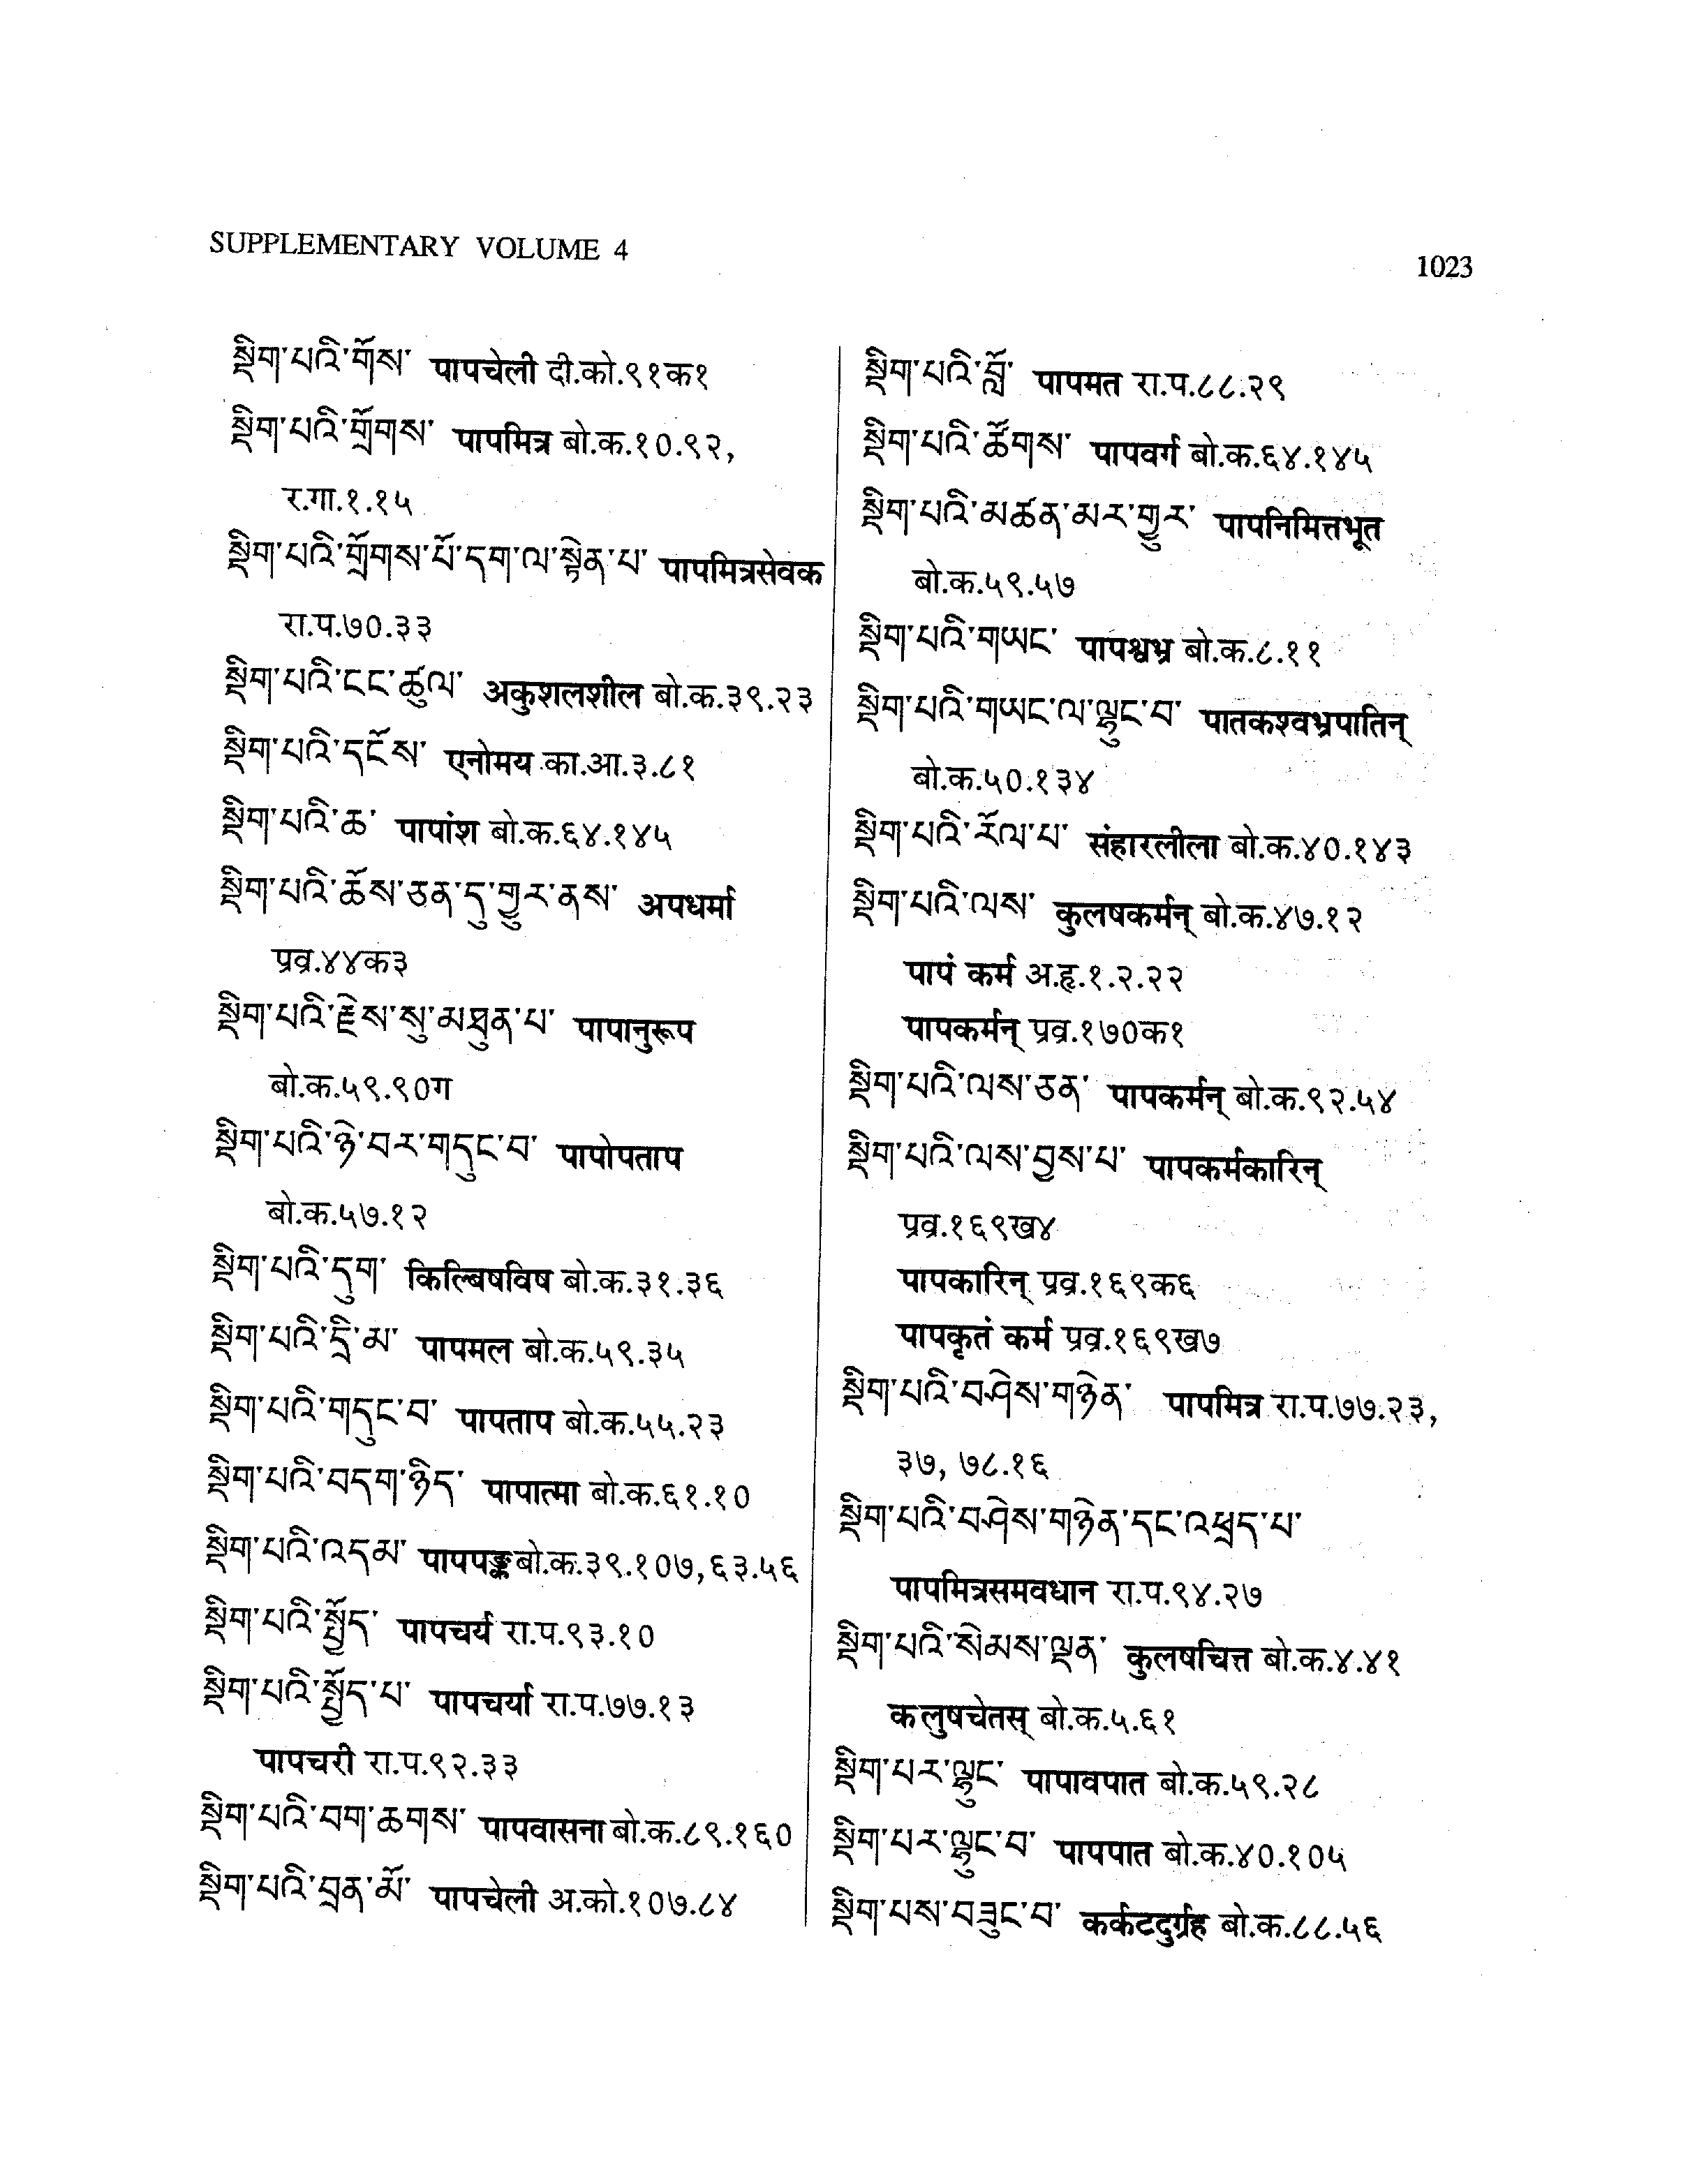 SUPPLEMENTARY VOLUME 4
1023
སྡིག་པའི་གོས་ पापचेली दी.को.९१क१
སྡིག་པའི་གྲོགས་ पापमित्र बो.क.१०.९२,
र.गा.१.१५
སྡིག་པའི་གྲོགས་པོ་དག་ལ་སྟེན་པ་ पापमित्रसेवक
रा.प.७०.३३
སྡིག་པའི་ངང་ཚུལ་ अकुशलशील बो.क.३९.२३
སྡིག་པའི་དངོས་ एनोमय का.आ.३.८१
སྡིག་པའི་ཆ་ पापांश बो.क.६४.१४५
སྡིག་པའི་ཆོས་ཅན་དུ་གྱུར་ནས་ अपधर्मा
प्रव्र.४४क३
སྡིག་པའི་རྗེས་སུ་མཐུན་པ་ पापानुरूप
बो.क.५९.९०ग
སྡིག་པའི་ཉེ་བར་གདུང་བ་ पापोपताप
बो.क.५७.१२
སྡིག་པའི་དུག་ किल्बिषविष बो.क.३१.३६
སྡིག་པའི་དྲི་མ་ पापमल बो.क.५९.३५
སྡིག་པའི་གདུང་བ་ पापताप बो.क.५५.२३
སྡིག་པའི་བདག་ཉིད་ पापात्मा बो.क.६१.१०
སྡིག་པའི་འདམ་ पापपङ्क बो.क.३९.१०७,६३.५६
སྡིག་པའི་སྤྱོད་ पापचर्य रा.प.९३.१०
སྡིག་པའི་སྤྱོད་པ་ पापचर्या रा.प.७७.१३
पापचरी रा.प.९२.३३
སྡིག་པའི་བག་ཆགས་ पापवासना बो.क.८९.१६०
སྡིག་པའི་བྲན་མོ་ पापचेली अ.को.१०७.८४
སྡིག་པའི་བློ་ पापमत रा.प.८८.२९
སྡིག་པའི་ཚོགས་ पापवर्ग बो.क.६४.१४५
སྡིག་པའི་མཚན་མར་གྱུར་ पापनिमित्तभूत
बो.क.५९.५७
སྡིག་པའི་གཡང་ पापश्वभ्र बो.क.८.११
སྡིག་པའི་གཡང་ལ་ལྷུང་བ་ पातकश्वभ्रपातिन्
बो.क.५०.१३४
སྡིག་པའི་རོལ་པ་ संहारलीला बो.क.४०.१४३
སྡིག་པའི་ལས་ कुलषकर्मन् बो.क.४७.१२
पापं कर्म अ.हृ.१.२.२२
पापकर्मन् प्रव्र.१७०क१
སྡིག་པའི་ལས་ཅན་ पापकर्मन् बो.क.९२.५४
སྡིག་པའི་ལས་བྱས་པ་ पापकर्मकारिन्
प्रव्र.१६९ख४
पापकारिन् प्रव्र.१६९क६
पापकृतं कर्म प्रव्र.१६९ख७
སྡིག་པའི་བཤེས་གཉེན་ पापमित्र रा.प.७७.२३,
३७, ७८.१६
སྡིག་པའི་བཤེས་གཉེན་དང་འཕྲད་པ་
पापमित्रसमवधान रा.प.९४.२७
སྡིག་པའི་སེམས་ལྡན་ कुलषचित्त बो.क.४.४१
कलुषचेतस् बो.क.५.६१
སྡིག་པར་ལྷུང་ पापावपात बो.क.५९.२८
སྡིག་པར་ལྷུང་བ་ पापपात बो.क.४०.१०५
སྡིག་པས་བཟུང་བ་ कर्कटदुर्ग्रह बो.क.८८.५६